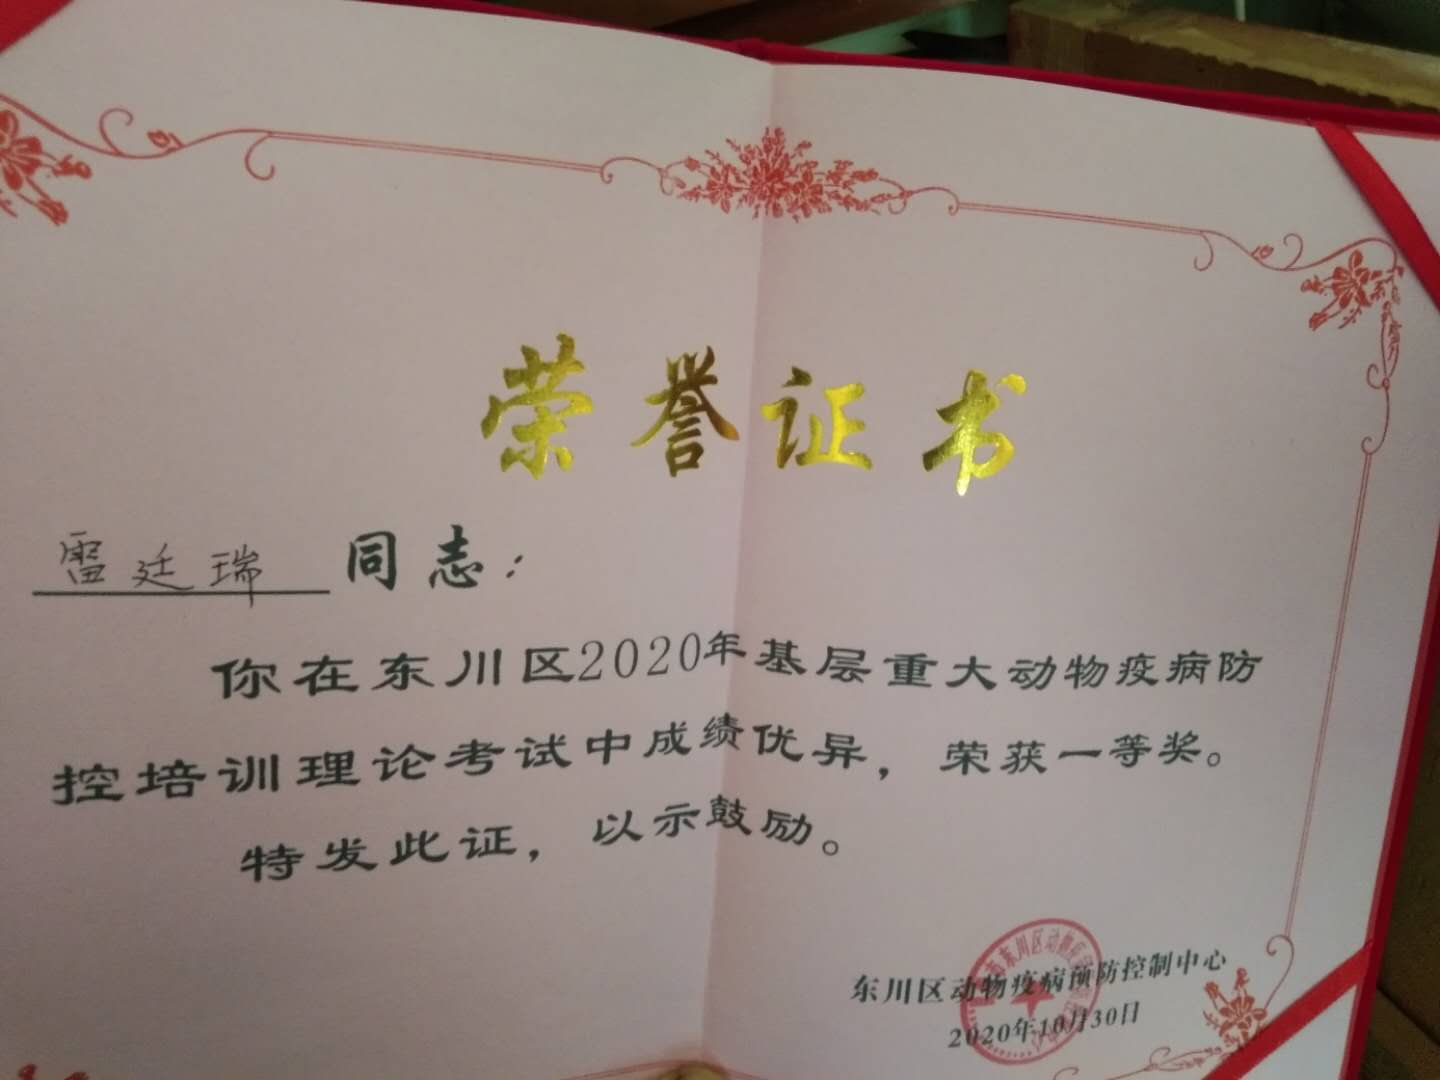 荣誉证书
雷廷瑞 同志：
你在东川区2020年基层重大动物疫病防
控培训理论考试中成绩优异，荣获一等奖。
特发此证，以示鼓励。
东川区动物疫病预防控制中心
2020年10月30日